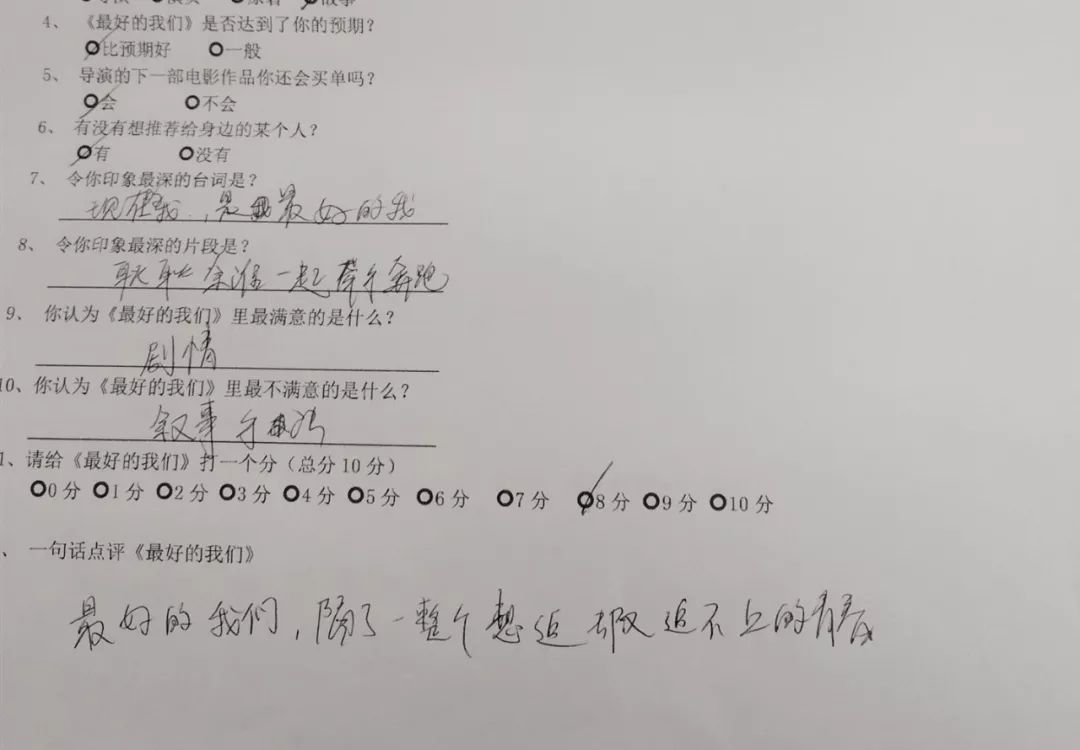 4、《最好的我们》是否达到了你的预期？
比预期好 一般
5、导演的下一部电影作品你还会买单吗？
会 不会
6、有没有想推荐给身边的某个人？
有 没有
7、令你印象最深的台词是？
现在我，是最好的我
8、令你印象最深的片段是？
耿耿余淮一起牵手奔跑
9、你认为《最好的我们》里最满意的是什么？
剧情
10、你认为《最好的我们》里最不满意的是什么？
叙事手法
1、请给《最好的我们》打一个分（总分10分）
0分 1分 2分 3分 4分 5分 6分 7分 8分 9分 10分
、一句话点评《最好的我们》
最好的我们，隔了一整个想追却又追不上的青春